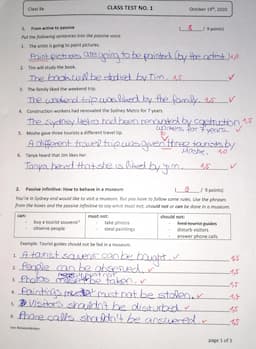 Class 8e CLASS TEST NO. 1 October 19th, 2020
1. From active to passive 8 ( / 9 points)
Put the following sentences into the passive voice.
1. The artist is going to paint pictures.
pictures are going to be painted (by the artist)
2. Tim will study the book.
The book will be studied by Tim. 1.5
3. The family liked the weekend trip.
The weekend trip was liked by the family. 1.5
4. Construction workers had renovated the Sydney Metro for 7 years.
The Sydney Metro had been renovated by construction 1.5
workers for 7 years.
5. Moshe gave three tourists a different travel tip.
A different travel trip was given three tourists by
Moshe. 1.0
6. Tanya heard that Jim likes her.
Tanya heard that she is liked by Jim. 1.5
2. Passive infinitive: How to behave in a museum 9 ( / 9 points)
You're in Sydney and would like to visit a museum. But you have to follow some rules. Use the phrases
from the boxes and the passive infinitive to say what must not, should not or can be done in a museum.
can: must not: should not:
- buy a tourist souvenir - take photos - feed tourist guides
- observe people - steal paintings - disturb visitors
- answer phone calls
Example: Tourist guides should not be fed in a museum.
1. A tourist souvenir can be bought. 1.5
2. People can be observed. 1.5
3. Photos must not be taken. 1.5
4. Paintings must not be stolen. 1.5
5. Visitors shouldn't be disturbed. 1.5
6. Phone calls shouldn't be answered. 1.5
page 1 of 3